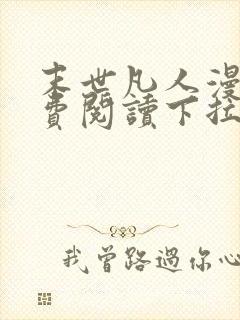 末世凡人漫
費閱讀下拉
我曾路過你心